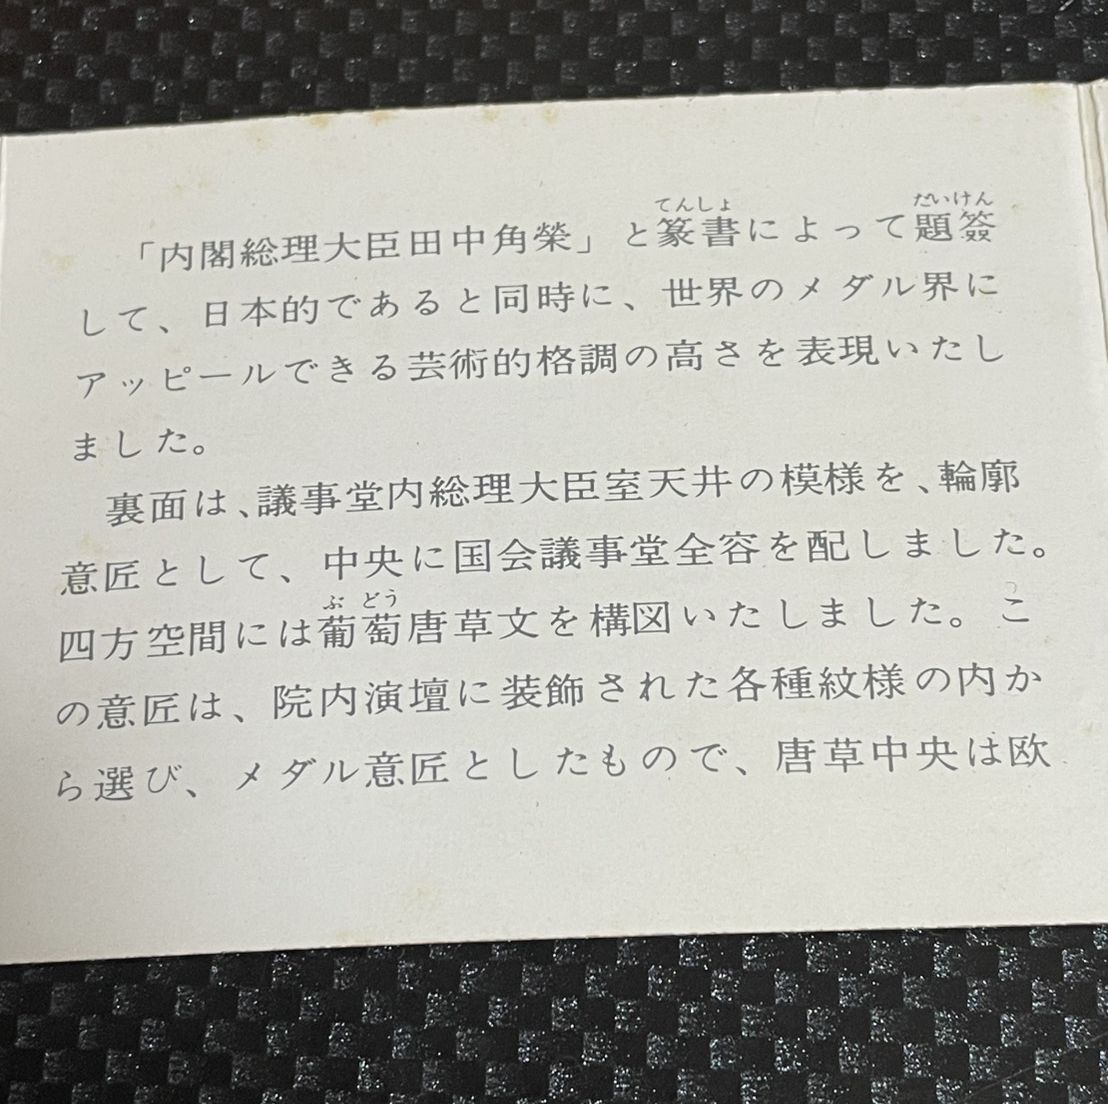 「内閣総理大臣田中角榮」と篆書によって題簽
して、日本的であると同時に、世界のメダル界に
アッピールできる芸術的格調の高さを表現いたし
ました。
裏面は、議事堂内総理大臣室天井の模様を、輪廓
意匠として、中央に国会議事堂全容を配しました。
四方空間には葡萄唐草文を構図いたしました。こ
の意匠は、院内演壇に装飾された各種紋様の内か
ら選び、メダル意匠としたもので、唐草中央は欧